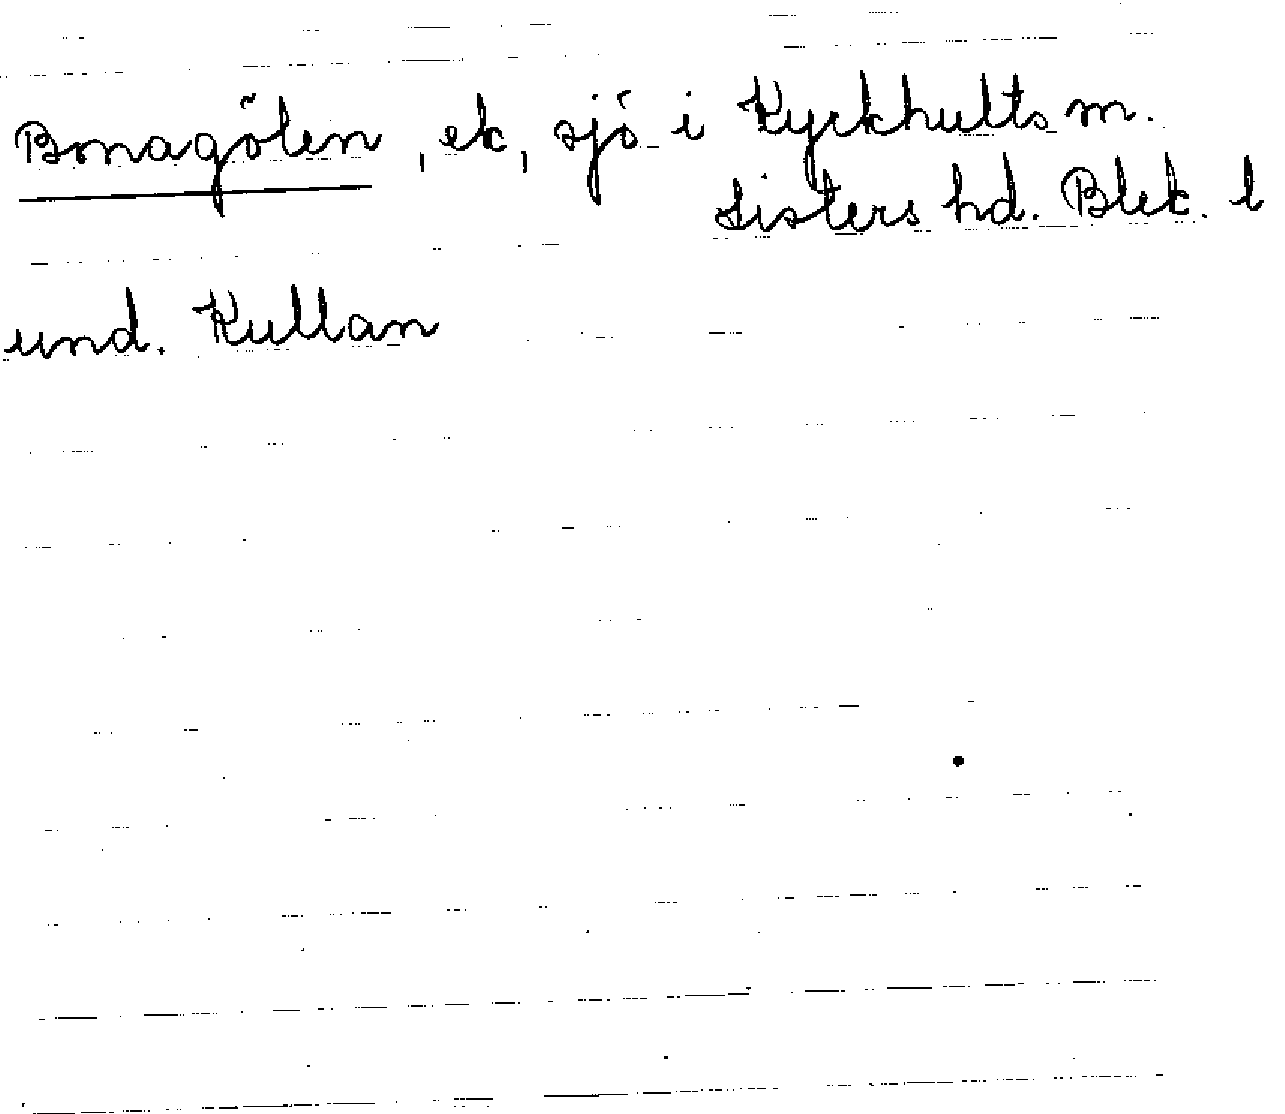 Bonagölen, ek, sjö i Kyrkhults m.
Listers hd. Blek. l
und. Kullan